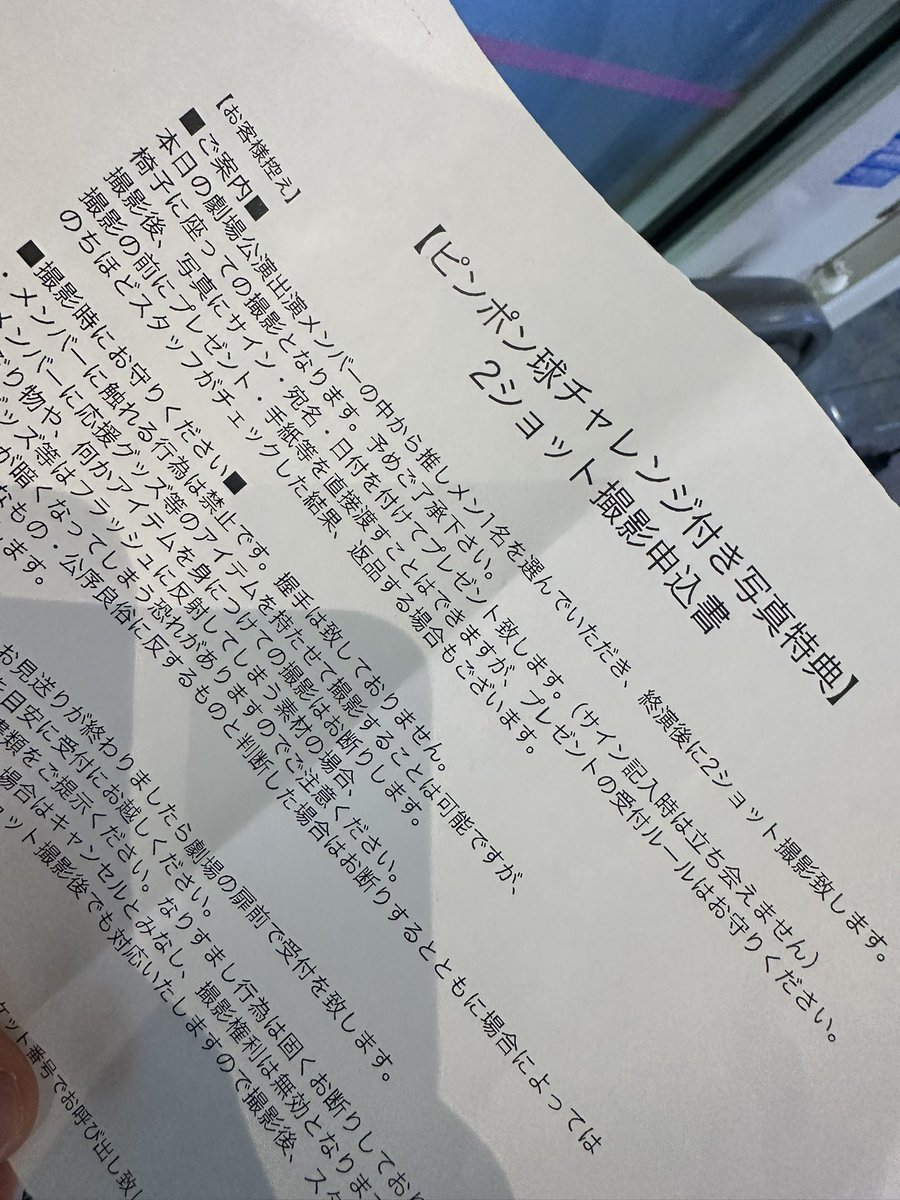 【お客様控え】
【ピンポン球チャレンジ付き写真特典】
2ショット撮影申込書
■ご案内■
本日の劇場公演出演メンバーの中から推しメン1名を選んでいただき、終演後に2ショット撮影致します。
椅子に座っての撮影となります。予めご了承下さい。
撮影後、写真にサイン・宛名・日付を付けてプレゼント致します。(サイン記入時は立ち会えません)
撮影の前にプレゼント・手紙等を直接渡すことはできますが、プレゼントの受付ルールはお守りください。
のちほどスタッフがチェックした結果、返品する場合もございます。
■撮影時にお守りください■
・メンバーに触れる行為は禁止です。握手は致しておりません。
・メンバーに応援グッズ等のアイテムを持たせて撮影することは可能ですが、
り物や、何かアイテムを身につけての撮影はお断りします。
ッズ等はフラッシュに反射してしまう素材の場合、
が暗くなってしまう恐れがありますのでご注意ください。
なもの・公序良俗に反するものと判断した場合はお断りするとともに場合によっては
ます。
お見送りが終わりましたら劇場の扉前で受付を致します。
を目安に受付にお越しください。
類をご提示ください。なりすまし行為は固くお断りしており
場合はキャンセルとみなし、撮影権利は無効となりま
ット撮影後でも対応いたしますので撮影後、ス
ケット番号でお呼び出し致し